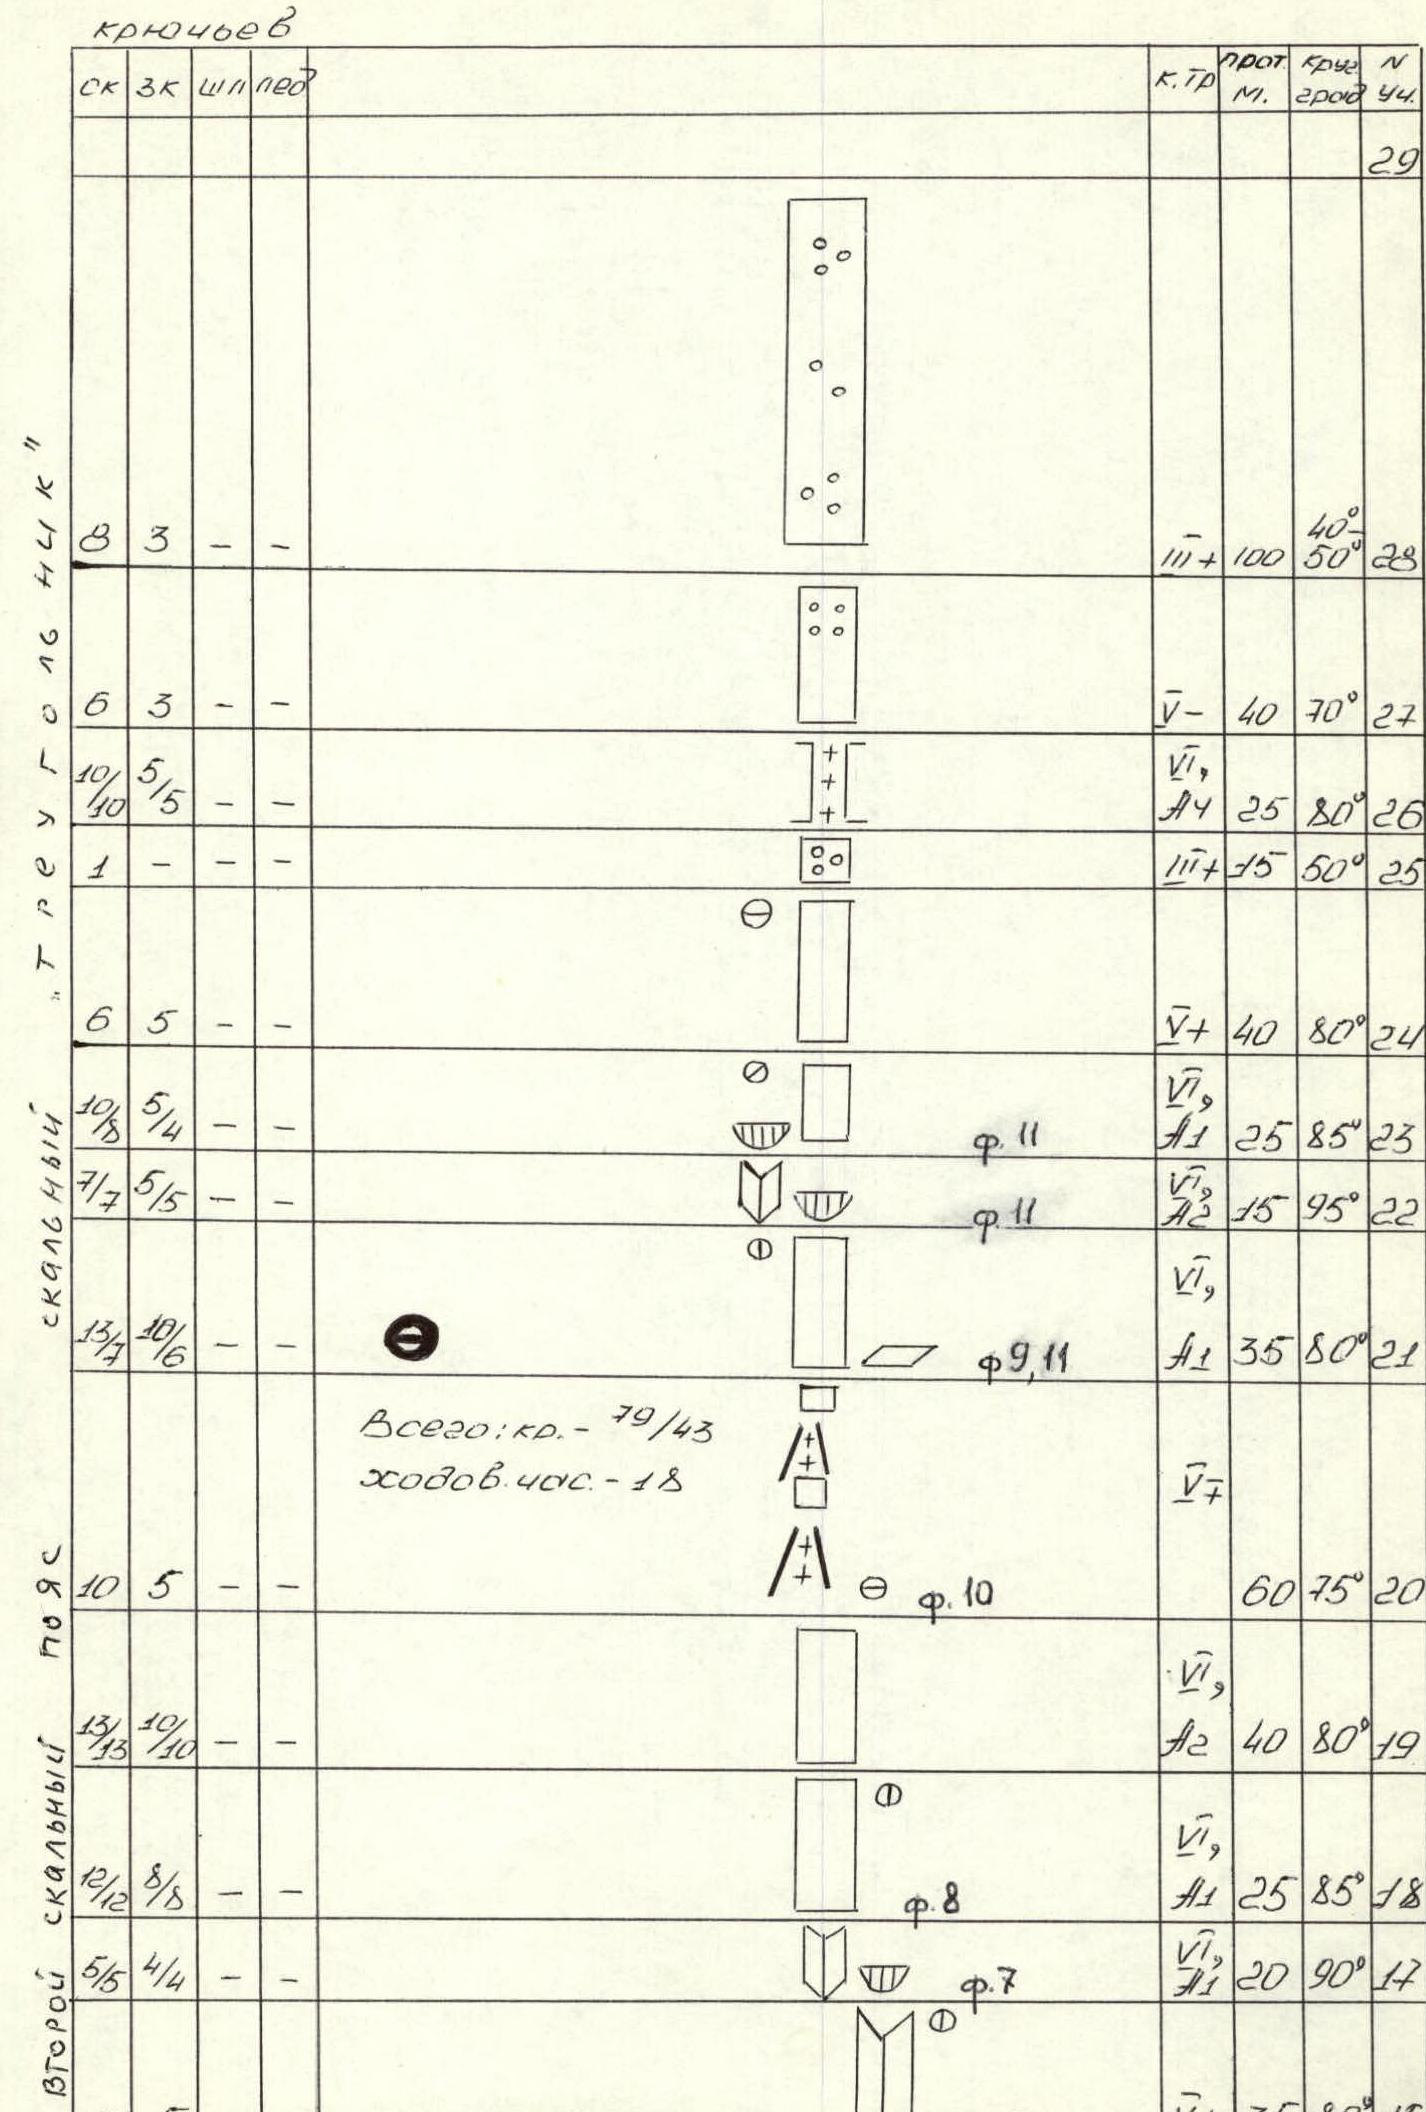 крючьев
ск зк шл лед к.тр прот. м. круг. град N уч.
29
8 3 – – III+ 100 40°-50° 28
6 3 – – V- 40 70° 27
10/10 5/5 – – VI, A4 25 80° 26
1 – – – III+ 15 50° 25
6 5 – – V+ 40 80° 24
10/8 5/4 – – ф. 11 VI, A1 25 85° 23
7/7 5/5 – – ф. 11 VI, A2 15 95° 22
13/7 10/6 – – ф 9, 11 VI, A1 35 80° 21
Всего: кр. - 79/43
ходов. час. - 18
10 5 – – ф. 10 V+ 60 75° 20
13/13 10/10 – – VI, A2 40 80° 19
12/12 8/8 – – ф. 8 VI, A1 25 85° 18
5/5 4/4 – – ф. 7 VI, A1 20 90° 17
Второй скальный пояс
скальный „Треугольник"